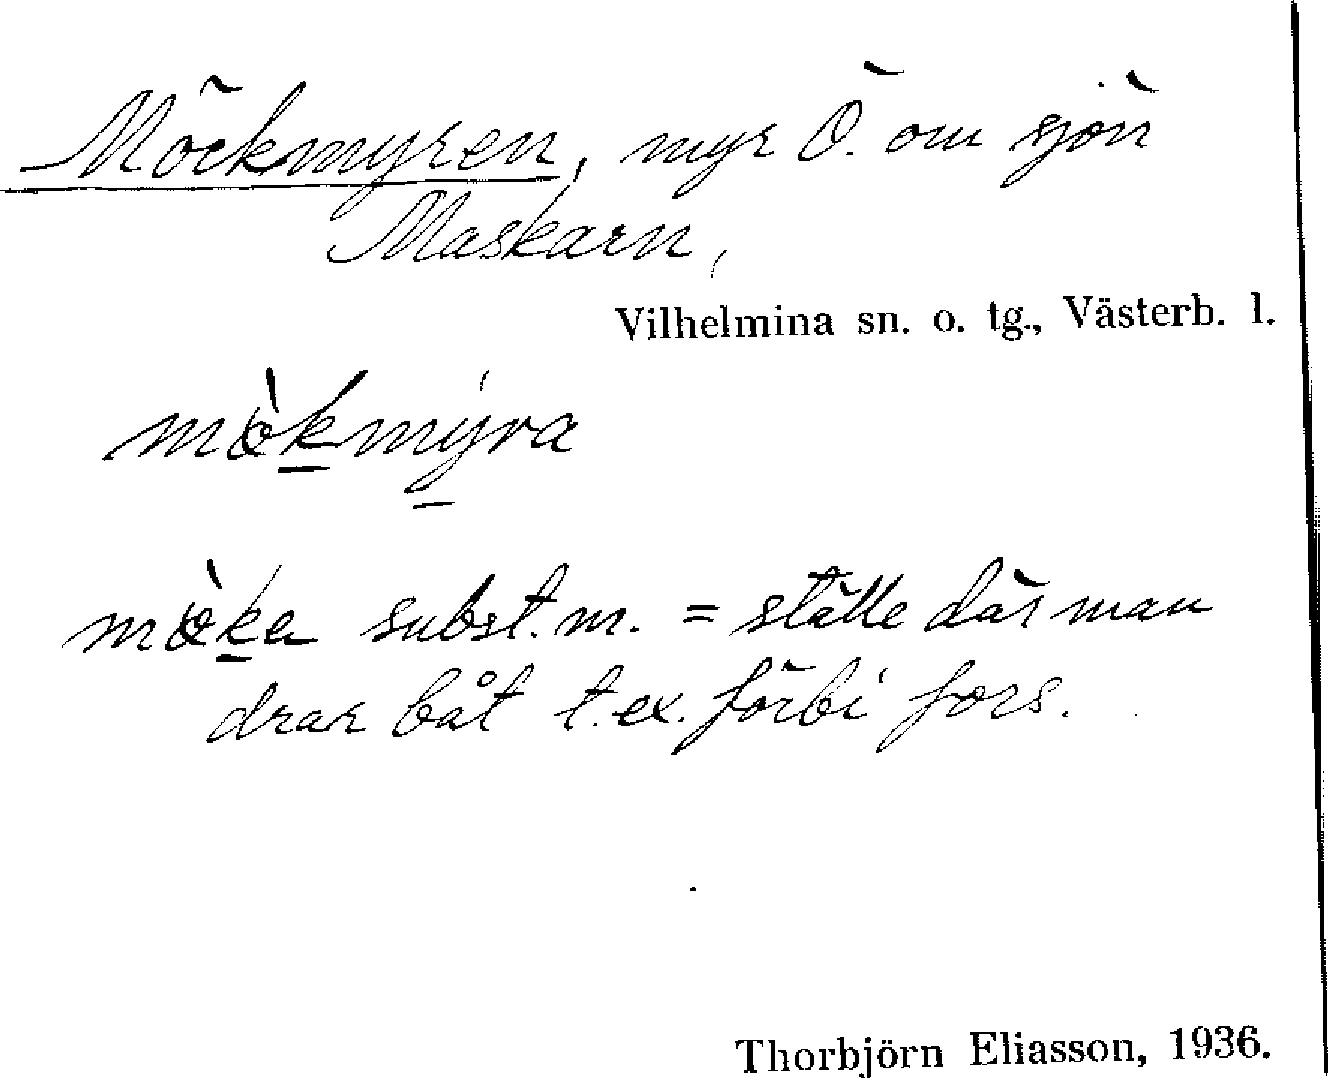 Möckmyren, myr Ö. om sjön
Maskarn,
Vilhelmina sn. o. tg., Västerb. l.
mœ̀kmýra
mœ̀ka subst. m. = ställe där man
drar båt t.ex. förbi fors.
Thorbjörn Eliasson, 1936.